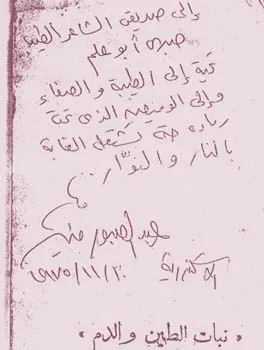 إلى صديقي الشاعر الطيب
صبري أبو علم
تحية إلى الطيبة والصفاء
وإلى الوميض الذي تحت
رماده حتى تشتعل الغابة
بالنار والنوّار..
الإسكندرية
١٩٧٥/١١/٢٠
« نبات الطين والدم »